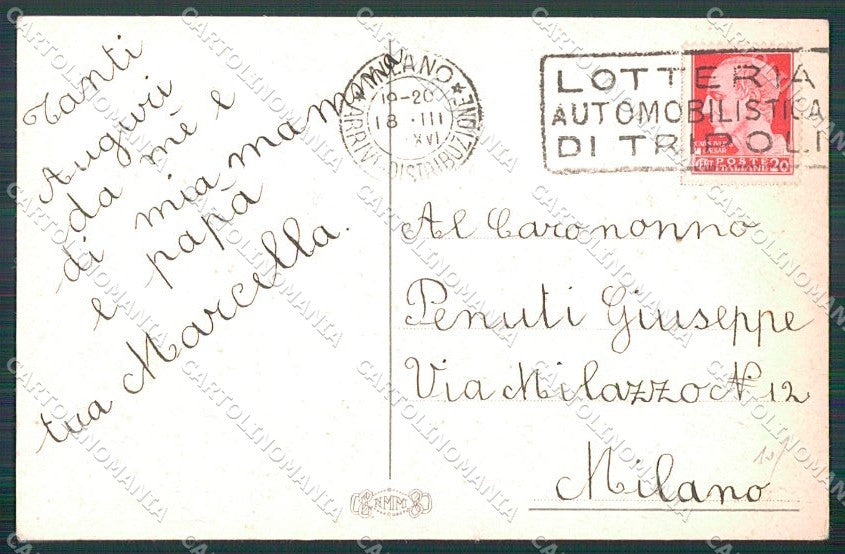 Tanti
Auguri
da mè e
di mia mamma
e papà
tua Marcella.
MILANO
19-20
18 · III
XVI
ARRIVI DISTRIBUZIONE
LOTTERIA
AUTOMOBILISTICA
DI TRIPOLI
POSTE
ITALIANE
20
Al Caro nonno
Penuti Giuseppe
Via Milazzo N. 12
Milano
NMM
CARTOLINOMANIA